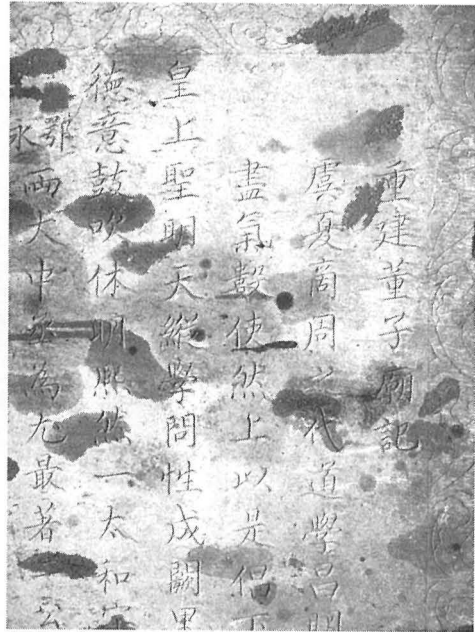 重建董子廟記
虞夏商周之代道學昌明
盡氣數使然上以是倡下
皇上聖明天縱學問性成闕里
德意鼓吹休明熙然一太和
鄂
永兩大中丞為尤最著
公